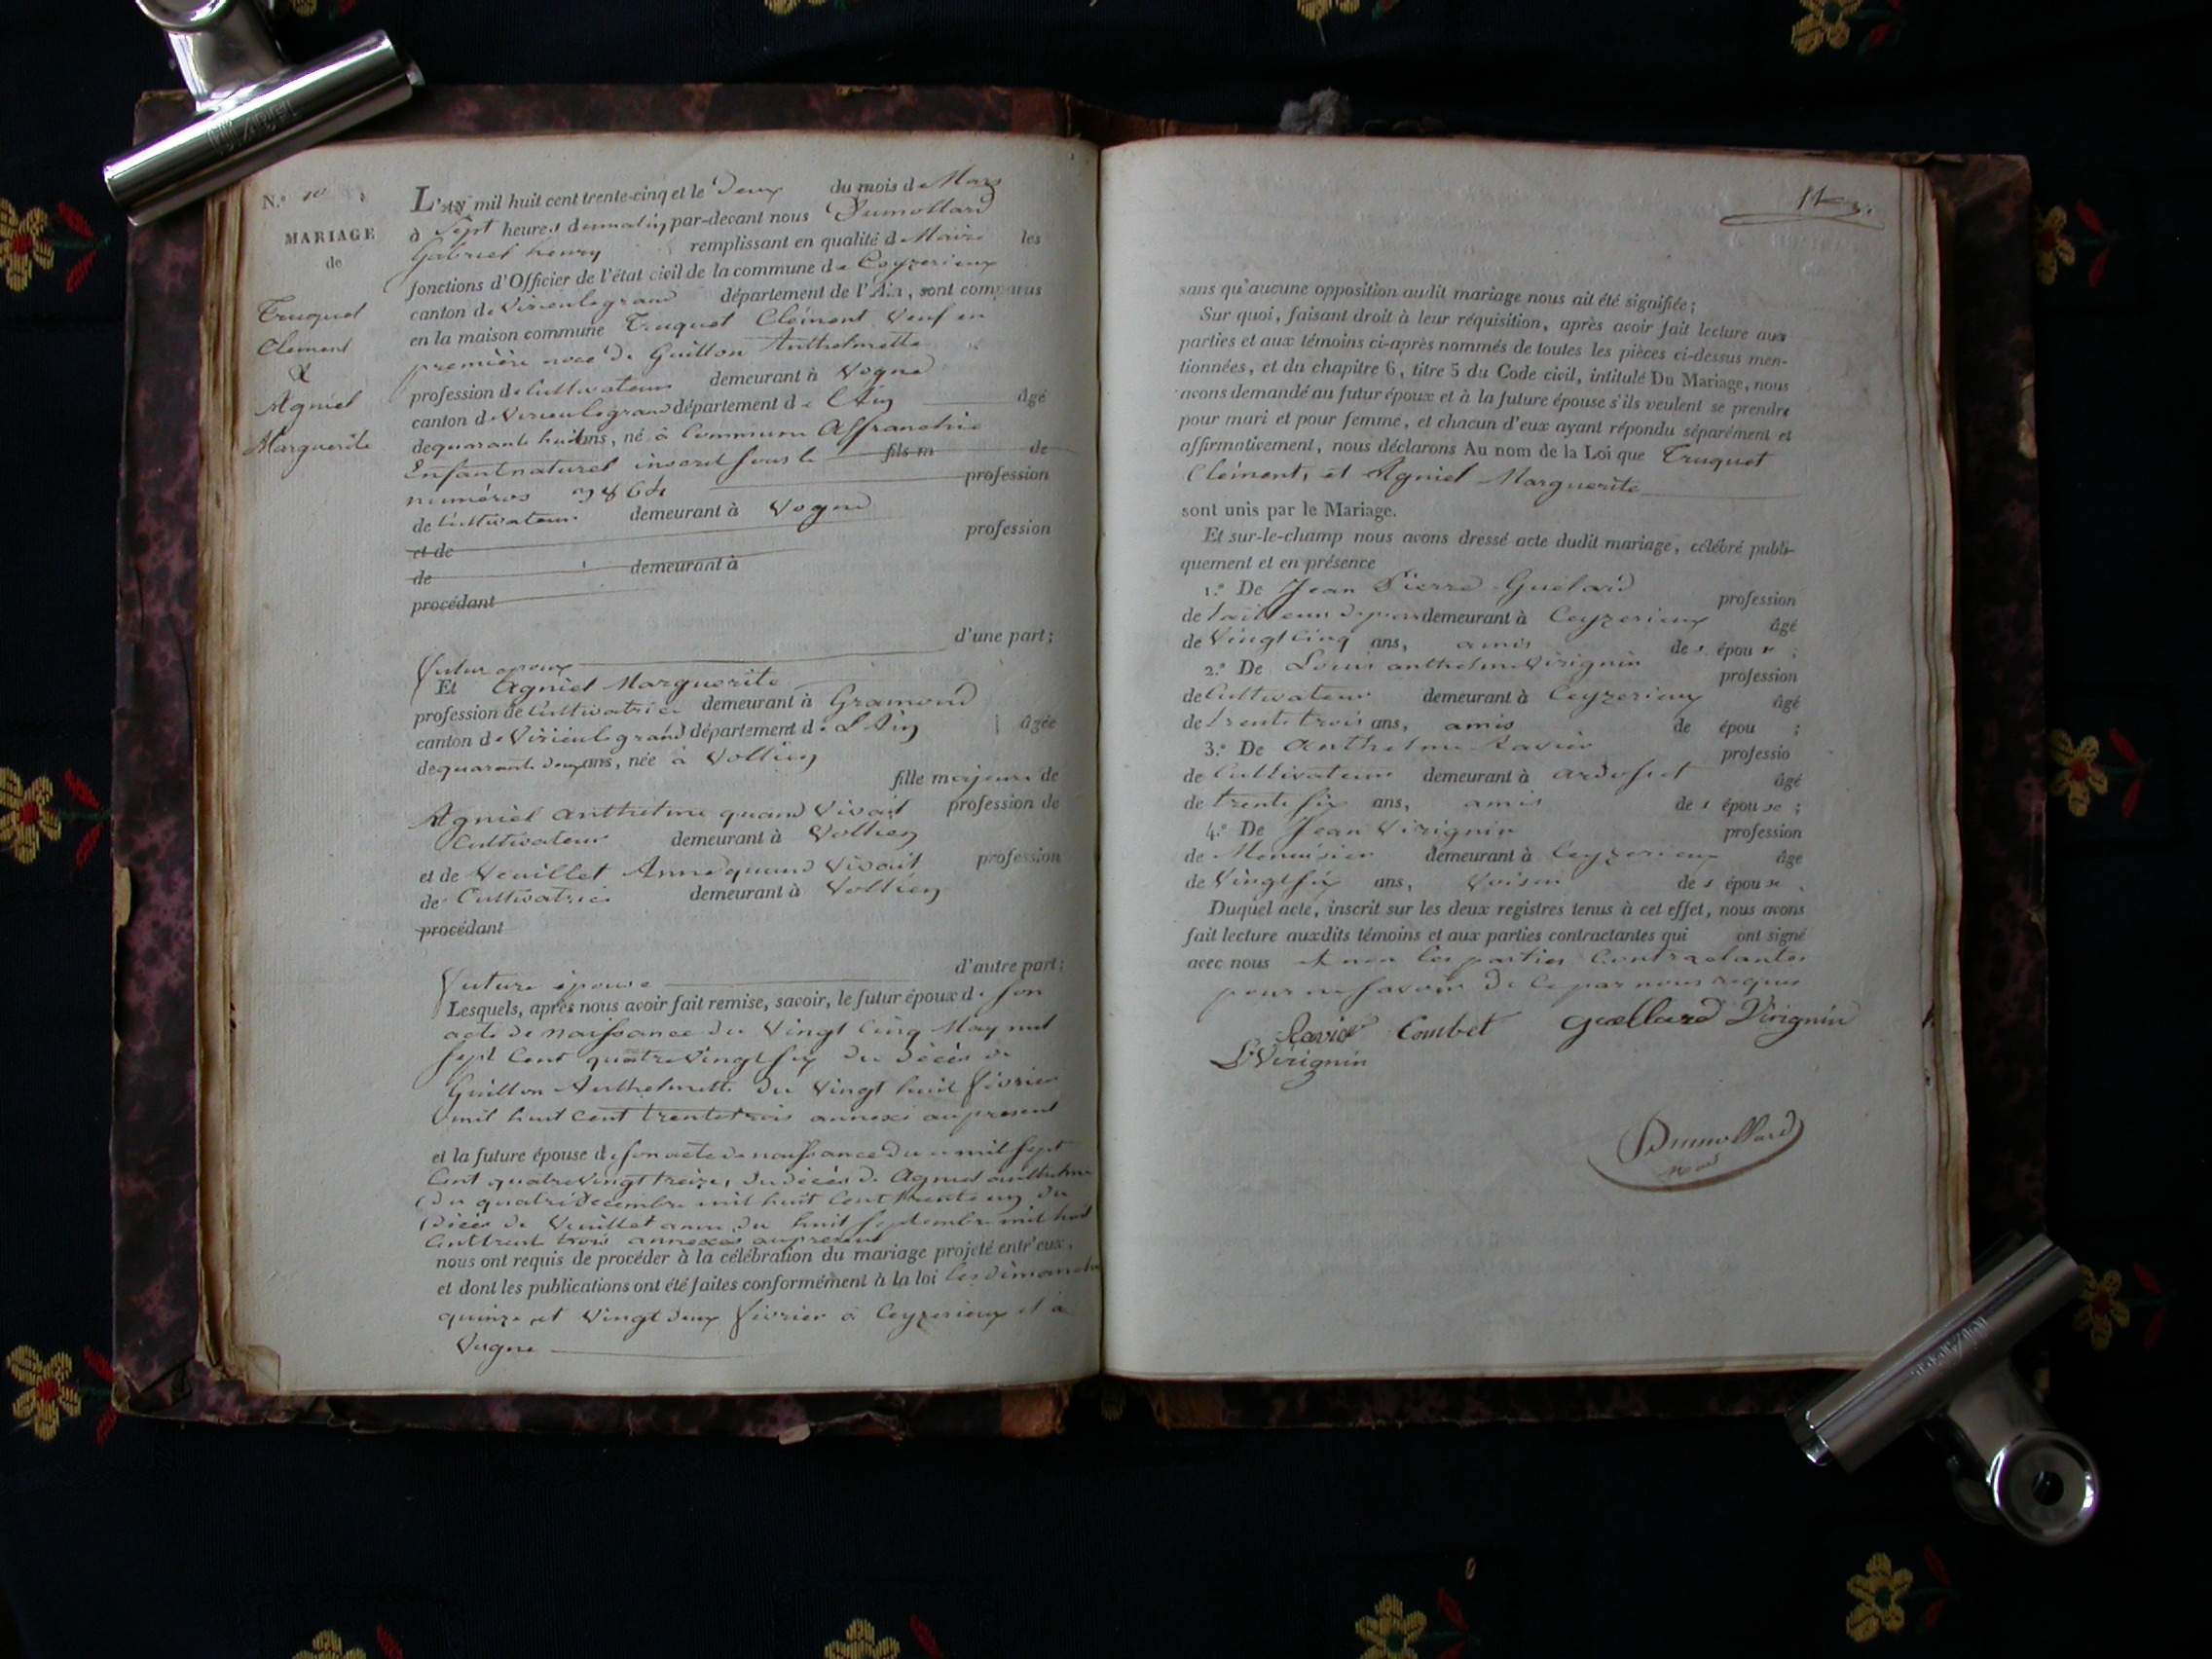 N.º 10
MARIAGE
de
Truquet
Clement
&
Agniel
Marguerite
L'AN mil huit cent trente-cinq et le Deux du mois de Mars
à Sept heures du matin par-devant nous Dumollard
Gabriel henry remplissant en qualité de Maire les
fonctions d'Officier de l'état civil de la commune de Ceyzerieux
canton de Virieulegrand département de l'Ain, sont comparus
en la maison commune Truquet Clément Veuf en
première noce de Guillon Anthelmette
profession de Cultivateur demeurant à Vogne
canton de Virieulegrand département de L'Ain âgé
de quarante huit ans, né à Commune Affranchie
Enfant naturel inscrit sous le fils m de
numéros profession
de Cultivateur demeurant à Vogne
et de profession
de demeurant à
procédant
d'une part;
futur epoux
Et Agniel Marguerite
profession de Cultivatrice demeurant à Gramond
canton de Virieulegrand département de L'Ain âgée
de quarante deux ans, née à Voltien
fille majeure de
Agniel anthelme quand Vivait profession de
Cultivateur demeurant à Voltien
et de Veuillet Anne quand Vivait profession
de Cultivatrice demeurant à Voltien
procédant
d'autre part;
future épouse
Lesquels, après nous avoir fait remise, savoir, le futur époux de son
acte de naissance du Vingt Cinq May mil
sept Cent quatre Vingt six du Décès de
Guillon Anthelmette du Vingt huit février
mil huit cent trente trois annexé au present
et la future épouse de son acte de naissance du mil sept
Cent quatre Vingt treize, du décès de Agniel anthelme
du quatre Decembre mil huit Cent trente un du
Décès de Veuillet anne du huit septembre mil huit
Cent trente trois annexés au present
nous ont requis de procéder à la célébration du mariage projeté entr'eux,
et dont les publications ont été faites conformément à la loi les dimanche
quinze et Vingt deux février à Ceyzerieux et à
Vogne
sans qu'aucune opposition audit mariage nous ait été signifiée;
Sur quoi, faisant droit à leur réquisition, après avoir fait lecture aux
parties et aux témoins ci-après nommés de toutes les pièces ci-dessus men-
tionnées, et du chapitre 6, titre 5 du Code civil, intitulé Du Mariage, nous
avons demandé au futur époux et à la future épouse s'ils veulent se prendre
pour mari et pour femme, et chacun d'eux ayant répondu séparément et
affirmativement, nous déclarons Au nom de la Loi que Truquet
Clément, et Agniel Marguerite
sont unis par le Mariage.
Et sur-le-champ nous avons dressé acte dudit mariage, célébré publi-
quement et en présence
1.º De Jean Pierre Guélard profession
de tailleur de pierre demeurant à Ceyzerieux âgé
de Vingt Cinq ans, amis de s épou x ;
2.º De Louis anthelme Virignin profession
de Cultivateur demeurant à Ceyzerieux âgé
de trente trois ans, amis de épou ;
3.º De Anthelme Ravier professio
de Cultivateur demeurant à ardosset âgé
de trente six ans, amis de s épou se ;
4.º De Jean Virignin profession
de Menuisier demeurant à Ceyzerieux âge
de Vingt six ans, Voisin de s épou x
Duquel acte, inscrit sur les deux registres tenus à cet effet, nous avons
fait lecture auxdits témoins et aux parties contractantes qui ont signé
avec nous et non les parties Contractantes
pour ne savoir de ce par nous requis
Ravier Coubet Guellard Virignin
L. Virignin
Dumollard